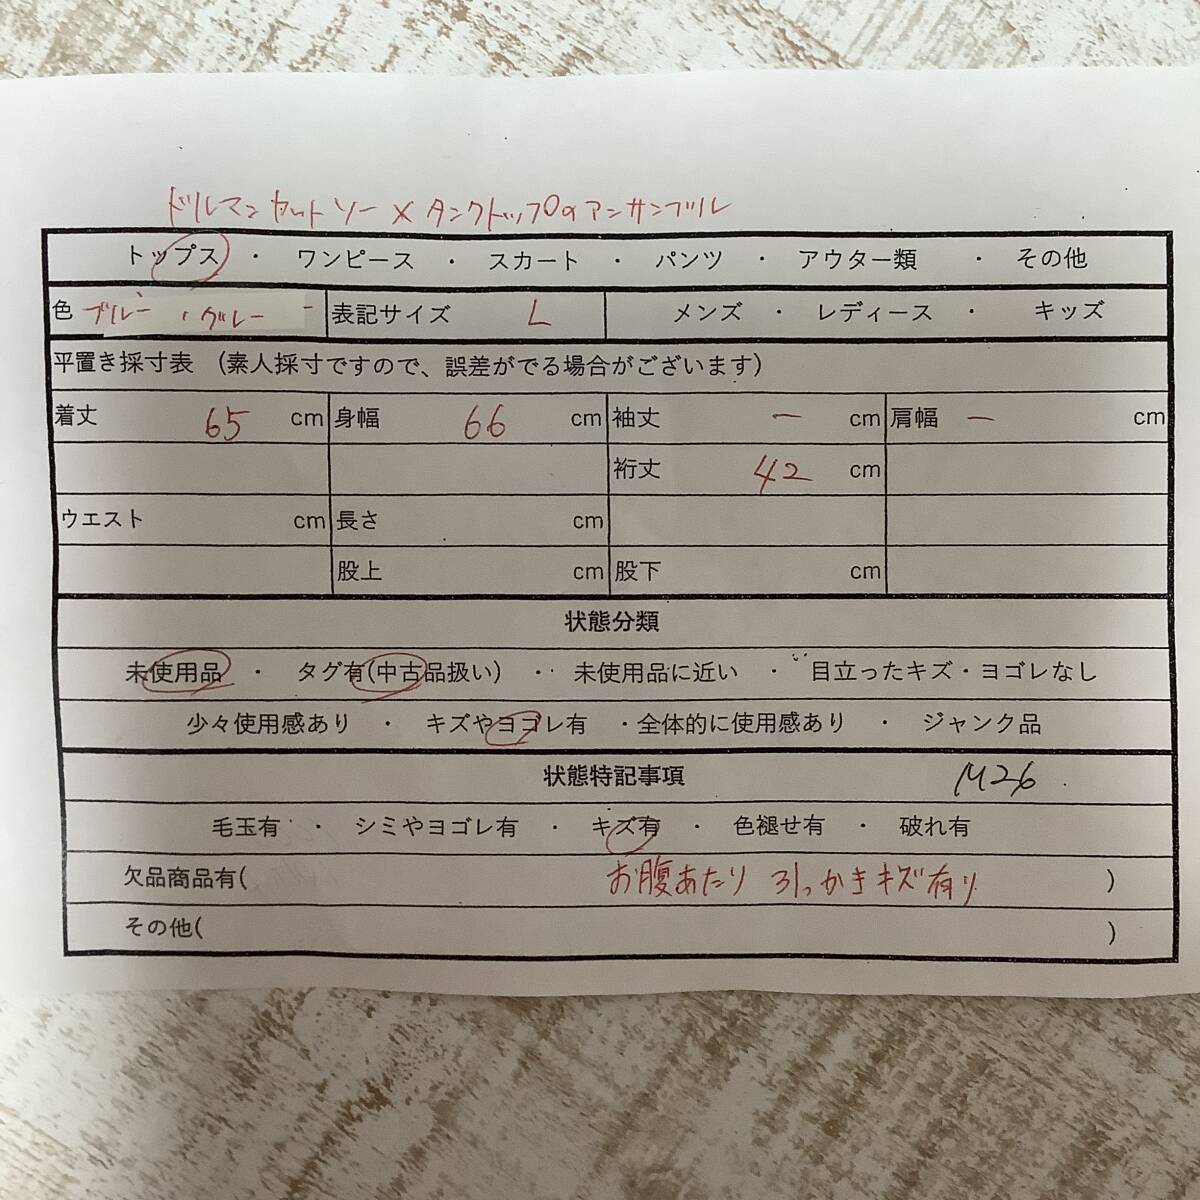 ドルマンカットソー×タンクトップのアンサンブル
トップス ・ ワンピース ・ スカート ・ パンツ ・ アウター類 ・ その他
色 ブルー・グレー 表記サイズ L メンズ ・ レディース ・ キッズ
平置き採寸表 (素人採寸ですので、誤差がでる場合がございます)
着丈 65 cm 身幅 66 cm 袖丈 ー cm 肩幅 ー cm
裄丈 42 cm
ウエスト cm 長さ cm
股上 cm 股下 cm
状態分類
未使用品 ・ タグ有(中古品扱い) ・ 未使用品に近い ・ 目立ったキズ・ヨゴレなし
少々使用感あり ・ キズやヨゴレ有 ・全体的に使用感あり ・ ジャンク品
状態特記事項 M26
毛玉有 ・ シミやヨゴレ有 ・ キズ有 ・ 色褪せ有 ・ 破れ有
欠品商品有( お腹あたり 引っかきキズ有り )
その他( )